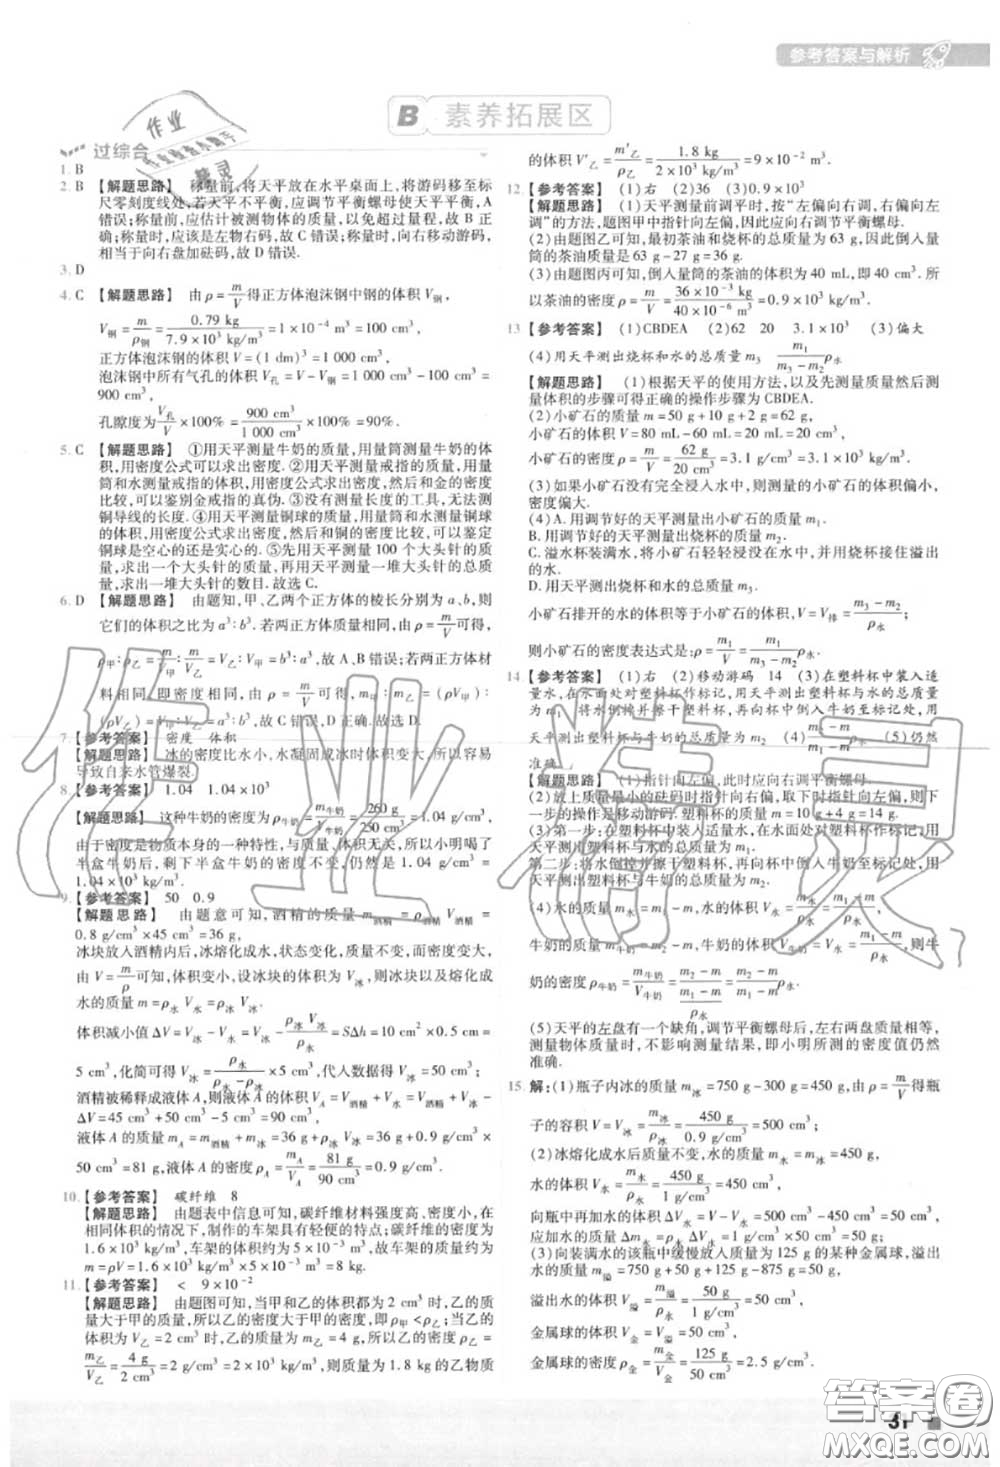 参考答案与解析
B 素养拓展区
过综合
1. B
2. B 【解题思路】 称量前,将天平放在水平桌面上,将游码移至标
尺零刻度线处,若天平不平衡,应调节平衡螺母使天平平衡,A
错误;称量前,应估计被测物体的质量,以免超过量程,故 B 正
确;称量时,应该是左物右码,故 C 错误;称量时,向右移动游码,
相当于向右盘加砝码,故 D 错误.
3. D
4. C 【解题思路】 由 ρ = m/V 得正方体泡沫钢中钢的体积 V钢,
V钢 = m/ρ钢 = 0.79 kg/7.9×10³ kg/m³ = 1×10⁻⁴ m³ = 100 cm³,
正方体泡沫钢的体积 V = (1 dm)³ = 1 000 cm³,
泡沫钢中所有气孔的体积 V孔 = 1 000 cm³ - 100 cm³ =
900 cm³,
孔隙度为 V孔/V ×100% = 900 cm³/1 000 cm³ ×100% = 90%.
5. C 【解题思路】 ①用天平测量牛奶的质量,用量筒测量牛奶的体
积,用密度公式可以求出密度. ②用天平测量戒指的质量,用量
筒和水测量戒指的体积,用密度公式求出密度,然后和金的密度
比较,可以鉴别金戒指的真伪. ③没有测量长度的工具,无法测
铜导线的长度. ④用天平测量铜球的质量,用量筒和水测量铜球
的体积,用密度公式求出密度,然后和铜的密度比较,可以鉴定
铜球是空心的还是实心的. ⑤先用天平测量 100 个大头针的质
量,求出一个大头针的质量,再用天平测量一堆大头针的总质
量,求出一堆大头针的数目. 故选 C.
6. D 【解题思路】 由题知,甲、乙两个正方体的棱长分别为 a、b,则
它们的体积之比为 a³∶b³. 若两正方体质量相同,由 ρ = m/V 可得,
ρ甲∶ρ乙 = m/V甲∶m/V乙 = V乙∶V甲 = b³∶a³,故 A、B 错误;若两正方体材
料相同,即密度相同,由 ρ = m/V 可得,m甲∶m乙 = (ρV甲)∶
(ρV乙) = V甲∶V乙 = a³∶b³,故 C 错误,D 正确. 故选 D.
7. 【参考答案】 密度 体积
【解题思路】 冰的密度比水小,水凝固成冰时体积变大,所以容易
导致自来水管爆裂.
8. 【参考答案】 1.04 1.04×10³
【解题思路】 这种牛奶的密度为 ρ牛奶 = m牛奶/V牛奶 = 260 g/250 cm³ = 1.04 g/cm³,
由于密度是物质本身的一种特性,与质量、体积无关,所以小明喝了
半盒牛奶后,剩下半盒牛奶的密度不变,仍然是 1.04 g/cm³ =
1.04×10³ kg/m³.
9. 【参考答案】 50 0.9
【解题思路】 由题意可知,酒精的质量 m酒精 = ρ酒精 V酒精 =
0.8 g/cm³×45 cm³ = 36 g,
冰块放入酒精内后,冰熔化成水,状态变化,质量不变,而密度变大,
由 V = m/ρ 可知,体积变小,设冰块的体积为 V冰,则冰块以及熔化成
水的质量 m = ρ水 V水 = ρ冰 V冰.
体积减小值 ΔV = V冰 - V水 = V冰 - ρ冰V冰/ρ水 = SΔh = 10 cm²×0.5 cm =
5 cm³,化简可得 V冰 = ρ水/ρ水-ρ冰 ×5 cm³,代入数据得 V冰 = 50 cm³;
酒精被稀释成液体 A,则液体 A 的体积为 V酒精 + V水 = V酒精 + V冰 -
ΔV = 45 cm³ + 50 cm³ - 5 cm³ = 90 cm³;
液体 A 的质量 mA = m酒精 + m冰 = 36 g + ρ冰 V冰 = 36 g + 0.9 g/cm³×
50 cm³ = 81 g,液体 A 的密度 ρA = mA/VA = 81 g/90 cm³ = 0.9 g/cm³.
10. 【参考答案】 碳纤维 8
【解题思路】 由题表中信息可知,碳纤维材料强度高、密度小,在
相同体积的情况下,制作的车架具有轻便的特点;碳纤维的密度为
1.6×10³ kg/m³,车架的体积约为 5×10⁻³ m³,故该车架的质量为
m = ρV = 1.6×10³ kg/m³×5×10⁻³ m³ = 8 kg.
11. 【参考答案】 < 9×10⁻²
【解题思路】 由题图可知,当甲和乙的体积都为 2 cm³ 时,乙的质
量大于甲的质量,所以乙的密度大于甲的密度,即 ρ甲<ρ乙;由题图
可知,当乙的体积 V乙 = 2 cm³ 时,乙的质量 m乙 = 4 g,所以乙的密度为
m乙/V乙 = 4 g/2 cm³ = 2 g/cm³ = 2×10³ kg/m³,则质量为 1.8 kg 的乙物质
的体积 V′乙 = m′乙/ρ乙 = 1.8 kg/2×10³ kg/m³ = 9×10⁻² m³.
12. 【参考答案】 (1)右 (2)36 (3)0.9×10³
【解题思路】 (1)天平测量前调平时,按“左偏向右调,右偏向左
调”的方法,题图甲中指针向左偏,因此应向右调节平衡螺母.
(2)由题图乙可知,最初茶油和烧杯的总质量为 63 g,因此倒入量筒
的茶油质量是 63 g - 27 g = 36 g.
(3)由题图丙可知,倒入量筒的茶油的体积为 40 mL,即 40 cm³. 所
以茶油的密度 ρ = m/V = 36×10⁻³ kg/40×10⁻⁶ m³ = 0.9×10³ kg/m³.
13. 【参考答案】 (1)CBDEA (2)62 20 3.1×10³ (3)偏大
(4)用天平测出烧杯和水的总质量 m₁/m₃-m₂ ρ水
【解题思路】 (1)根据天平的使用方法,以及先测量质量然后测
量体积的步骤可得正确的操作步骤为 CBDEA.
(2)小矿石的质量 m = 50 g + 10 g + 2 g = 62 g,
小矿石的体积 V = 80 mL - 60 mL = 20 mL = 20 cm³,
小矿石的密度 ρ = m/V = 62 g/20 cm³ = 3.1 g/cm³ = 3.1×10³ kg/m³.
(3)如果小矿石没有完全浸入水中,则测量的小矿石的体积偏小,
密度偏大.
(4)A. 用调节好的天平测量出小矿石的质量 m₁.
B. 用调节好的天平测量出烧杯的质量 m₂.
C. 溢水杯装满水,将小矿石轻轻浸没在水中,并用烧杯接住溢出
的水.
D. 用天平测出烧杯和水的总质量 m₃.
小矿石排开的水的体积等于小矿石的体积,V = V排 = m₃-m₂/ρ水,
小矿石的密度表达式是:ρ = m₁/V = m₁/m₃-m₂ ρ水.
14. 【参考答案】 (1)右 (2)移动游码 14 (3)在塑料杯中装入适
量水,在水面处对塑料杯作标记,用天平测出塑料杯与水的总质量
为 m₁ 将水倒掉并擦干塑料杯,再向杯中倒入牛奶至标记处,用
天平测出塑料杯与牛奶的总质量为 m₂ (4) m₂-m/m₁-m ρ水 (5)仍然
准确
【解题思路】 (1)指针向左偏,此时应向右调平衡螺母.
(2)放上质量最小的砝码时指针向右偏,取下时指针向左偏,则下
一步的操作是移动游码. 塑料杯的质量 m = 10 g + 4 g = 14 g.
(3)第一步:在塑料杯中装入适量水,在水面处对塑料杯作标记,用
天平测出塑料杯与水的总质量为 m₁;
第二步:将水倒掉并擦干塑料杯,再向杯中倒入牛奶至标记处,用
天平测出塑料杯与牛奶的总质量为 m₂.
(4)水的质量 m水 = m₁-m,水的体积 V水 = m水/ρ水 = m₁-m/ρ水,
牛奶的质量 m牛奶 = m₂-m,牛奶的体积 V牛奶 = V水 = m₁-m/ρ水,则牛
奶的密度 ρ牛奶 = m牛奶/V牛奶 = m₂-m/(m₁-m/ρ水) = m₂-m/m₁-m ρ水.
(5)天平的左盘有一个缺角,调节平衡螺母后,左右两盘质量相等,
测量物体质量时,不影响测量结果,即小明所测的密度值仍然
准确.
15. 解:(1)瓶子内冰的质量 m冰 = 750 g - 300 g = 450 g,由 ρ = m/V 得瓶
子的容积 V = V冰 = m冰/ρ冰 = 450 g/0.9 g/cm³ = 500 cm³.
(2)冰熔化成水后质量不变,m水 = m冰 = 450 g,
水的体积 V水 = m水/ρ水 = 450 g/1 g/cm³ = 450 cm³,
向瓶中再加水的体积 ΔV水 = V - V水 = 500 cm³ - 450 cm³ = 50 cm³,
应加水的质量 Δm水 = ρ水ΔV水 = 1 g/cm³×50 cm³ = 50 g.
(3)向装满水的该瓶中缓慢放入质量为 125 g 的某种金属球,溢出
水的质量 m溢 = 750 g + 50 g + 125 g - 875 g = 50 g,
溢出水的体积 V溢 = m溢/ρ水 = 50 g/1 g/cm³ = 50 cm³,
金属球的体积 V金 = V溢 = 50 cm³,
金属球的密度 ρ金 = m金/V金 = 125 g/50 cm³ = 2.5 g/cm³.
31
作业精灵
答案圈
MXQE.COM